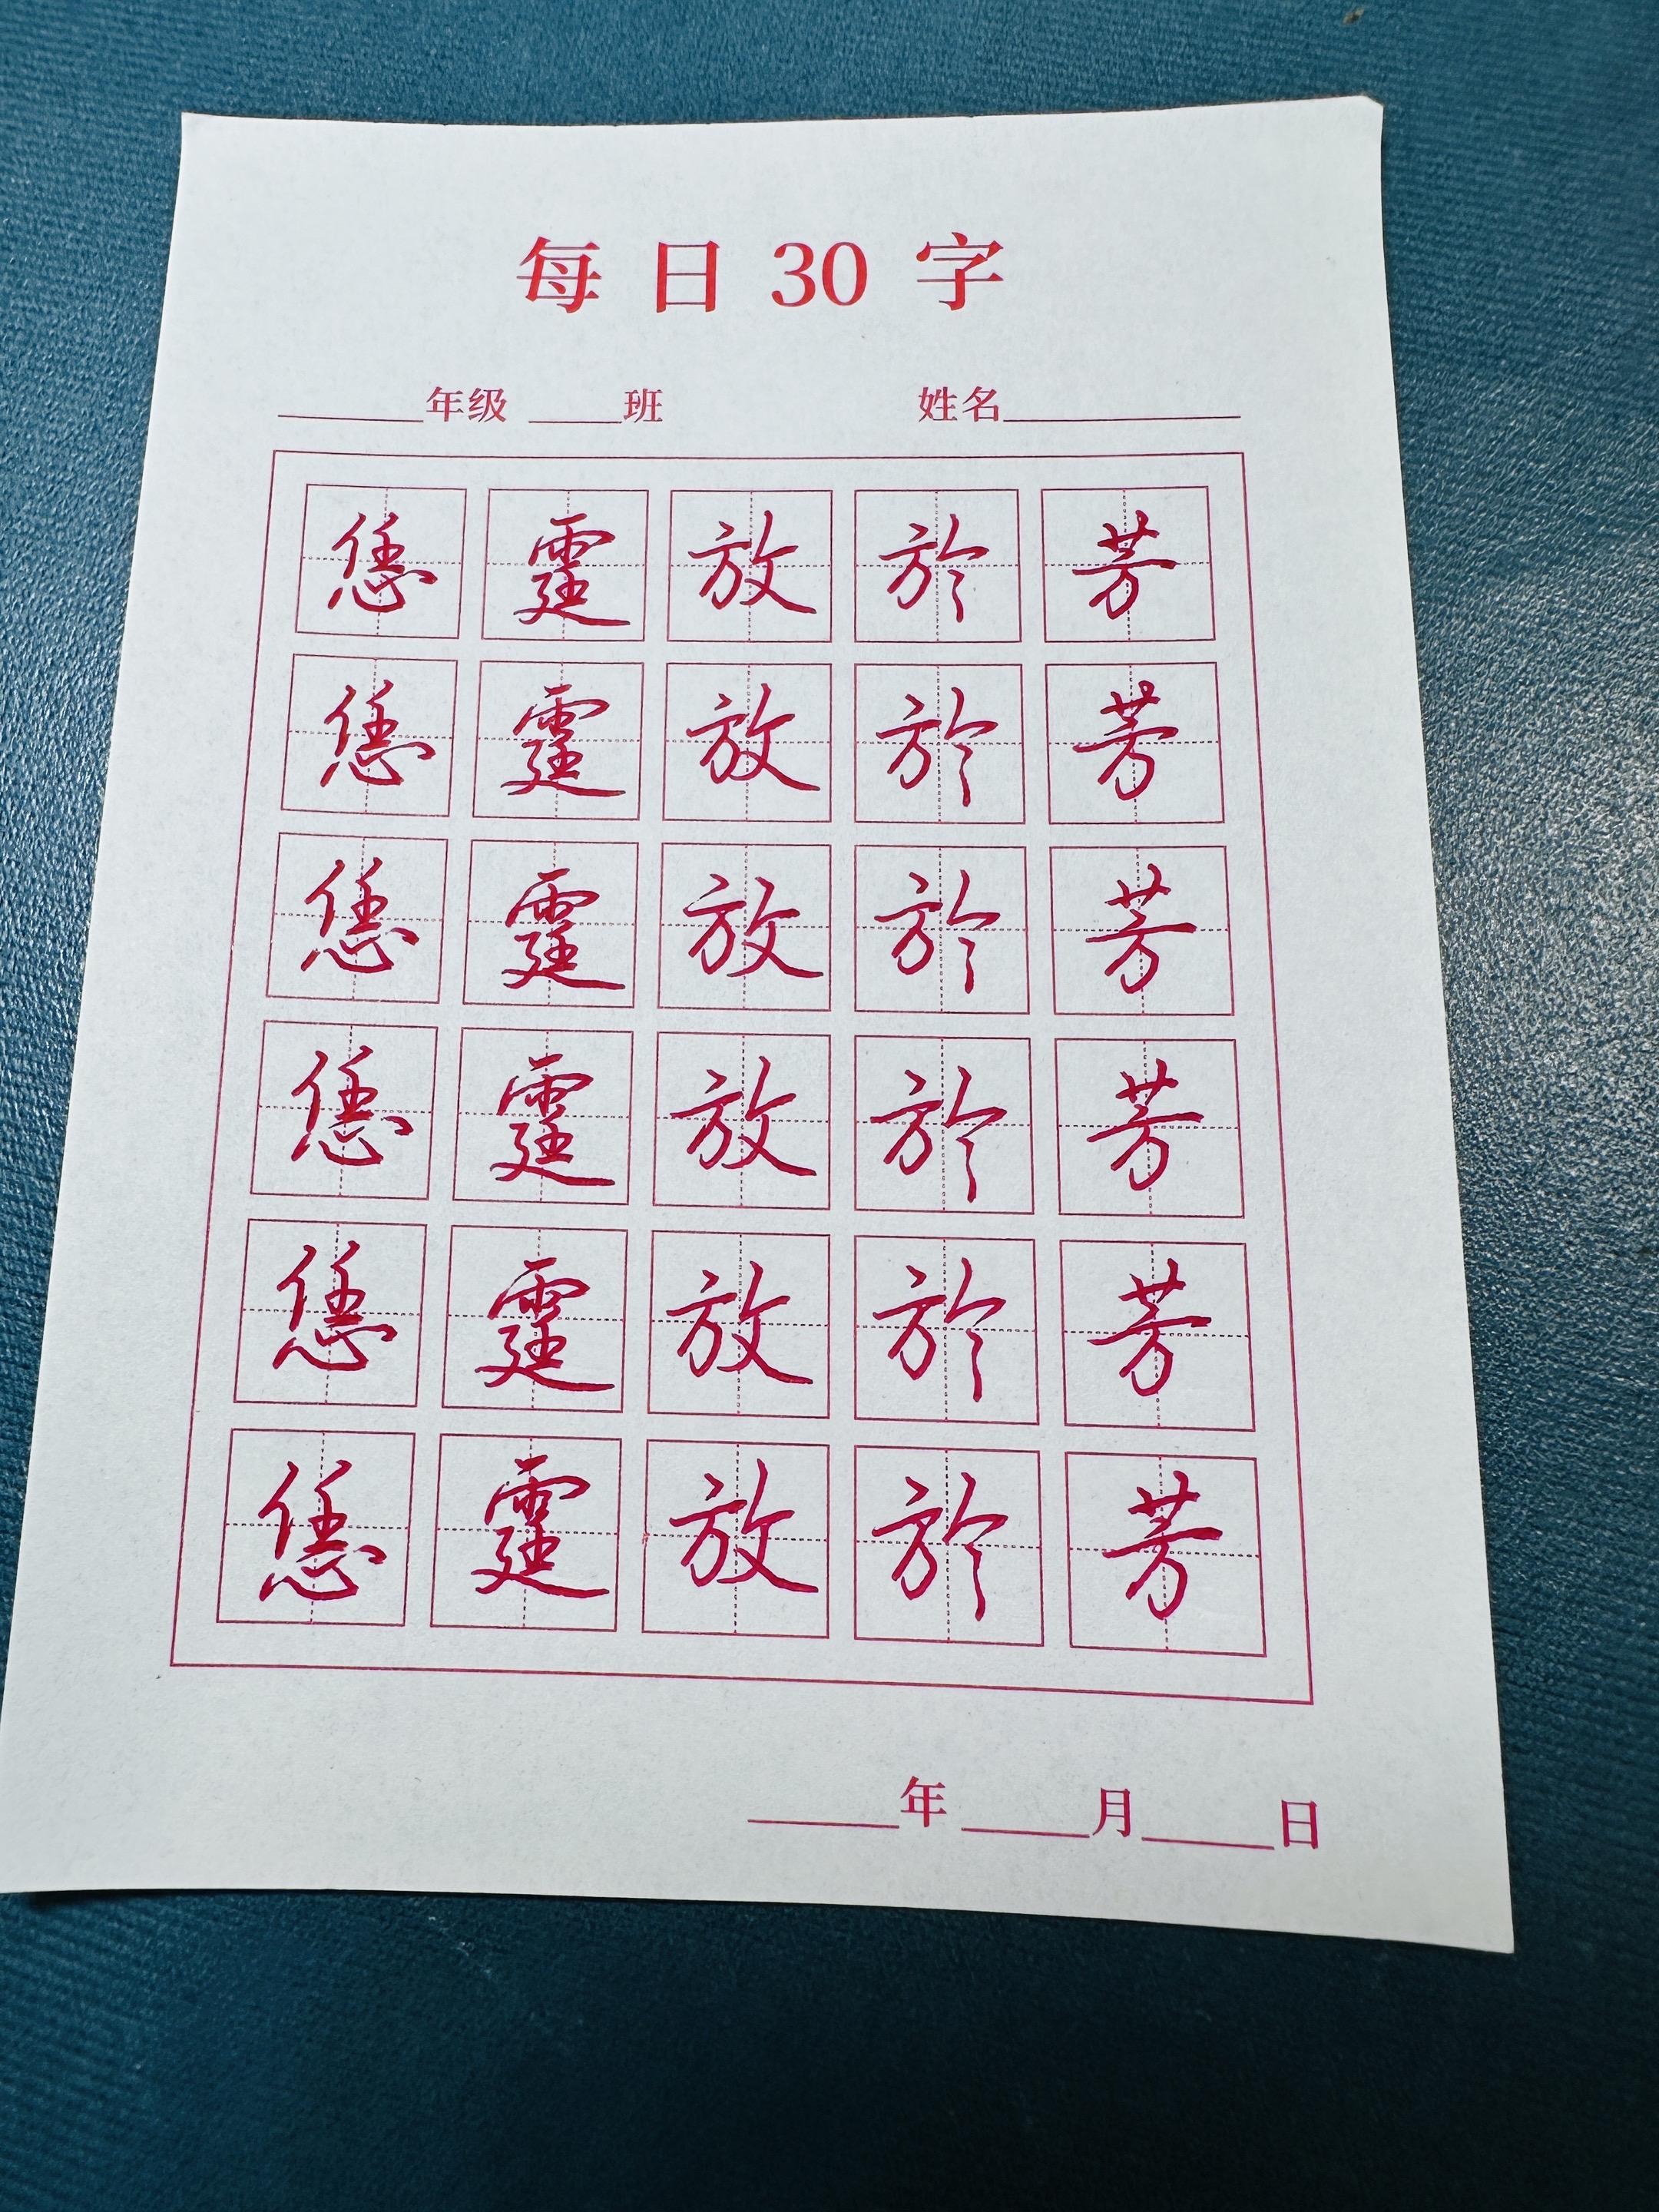 每日30字
年级 班 姓名
恁 霆 放 於 芳
恁 霆 放 於 芳
恁 霆 放 於 芳
恁 霆 放 於 芳
恁 霆 放 於 芳
恁 霆 放 於 芳
年 月 日